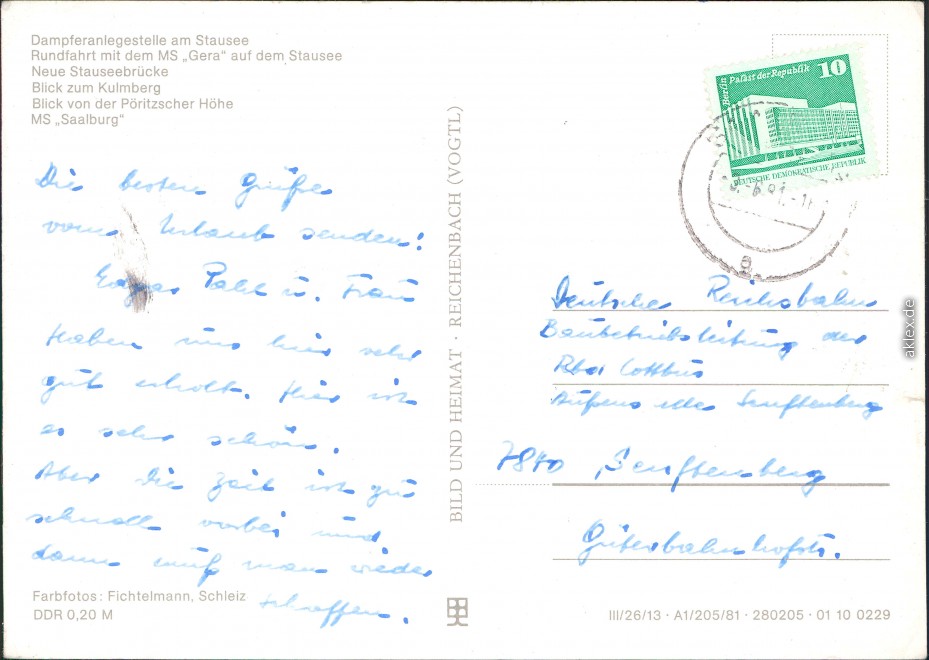 Dampferanlegestelle am Stausee
Rundfahrt mit dem MS „Gera“ auf dem Stausee
Neue Stauseebrücke
Blick zum Kulmberg
Blick von der Pöritzscher Höhe
MS „Saalburg“
Die besten Grüße
vom Urlaub senden!
u. Frau
Haben uns hier sehr
gut erholt. Hier ist
es sehr schön.
Aber die Zeit ist zu
schnell vorbei und
dann muß man wieder
schaffen.
Farbfotos: Fichtelmann, Schleiz
DDR 0,20 M
BILD UND HEIMAT · REICHENBACH (VOGTL)
Berlin Palast der Republik 10
DEUTSCHE DEMOKRATISCHE REPUBLIK
Deutsche Reichsbahn
Baubetriebsleitung der
Rbd Cottbus
Außenstelle Senftenberg
7840 Senftenberg
Güterbahnhofstr.
III/26/13 · A1/205/81 · 280205 · 01 10 0229
aklex.de